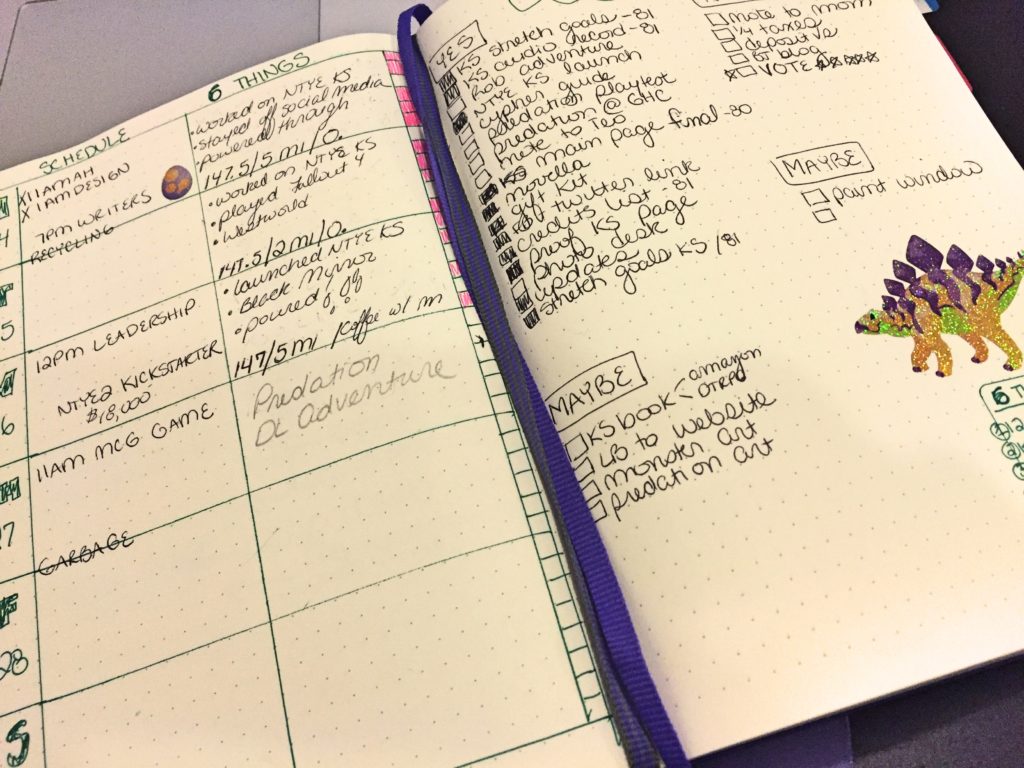 SCHEDULE
6 THINGS
X 11AM AH
X 1AM DESIGN
7PM WRITERS
RECYCLING
12PM LEADERSHIP
NTYE2 KICKSTARTER
$18,000
11AM MCG GAME
GARBAGE
4
5
6
7
F
28
S
• worked on NTYE KS
• stayed off social media
• powered through
147.5/5mi/0.
• worked on NTYE KS
• played Fallout 4
• Westworld
147.5/2mi/0.
• launched NTYE KS
• Black Mirror
147/5mi /coffee w/ m
Predation
DL Adventure
YES
stretch goals -81
KS audio record -81
adventure
NTYE KS launch
cypher guide
predation playtest
predation @ GHC
note to Teo
main page final -80
KS
novella
gift kit
twitter link
credits list -81
proof KS page
photo desk
updates
stretch goals KS /81
MAYBE
KS book < amazon
DTRPG
to website
monster art
predation art
note to mom
1/4 taxes
deposits
blog
VOTE
MAYBE
paint window
6 T